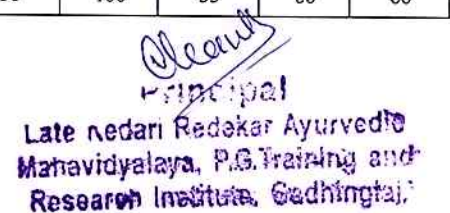 100
Principal
Late nedari Redekar Ayurvedic
Mahavidyalaya, P.G.Training and
Research Institute, Gadhinglaj.